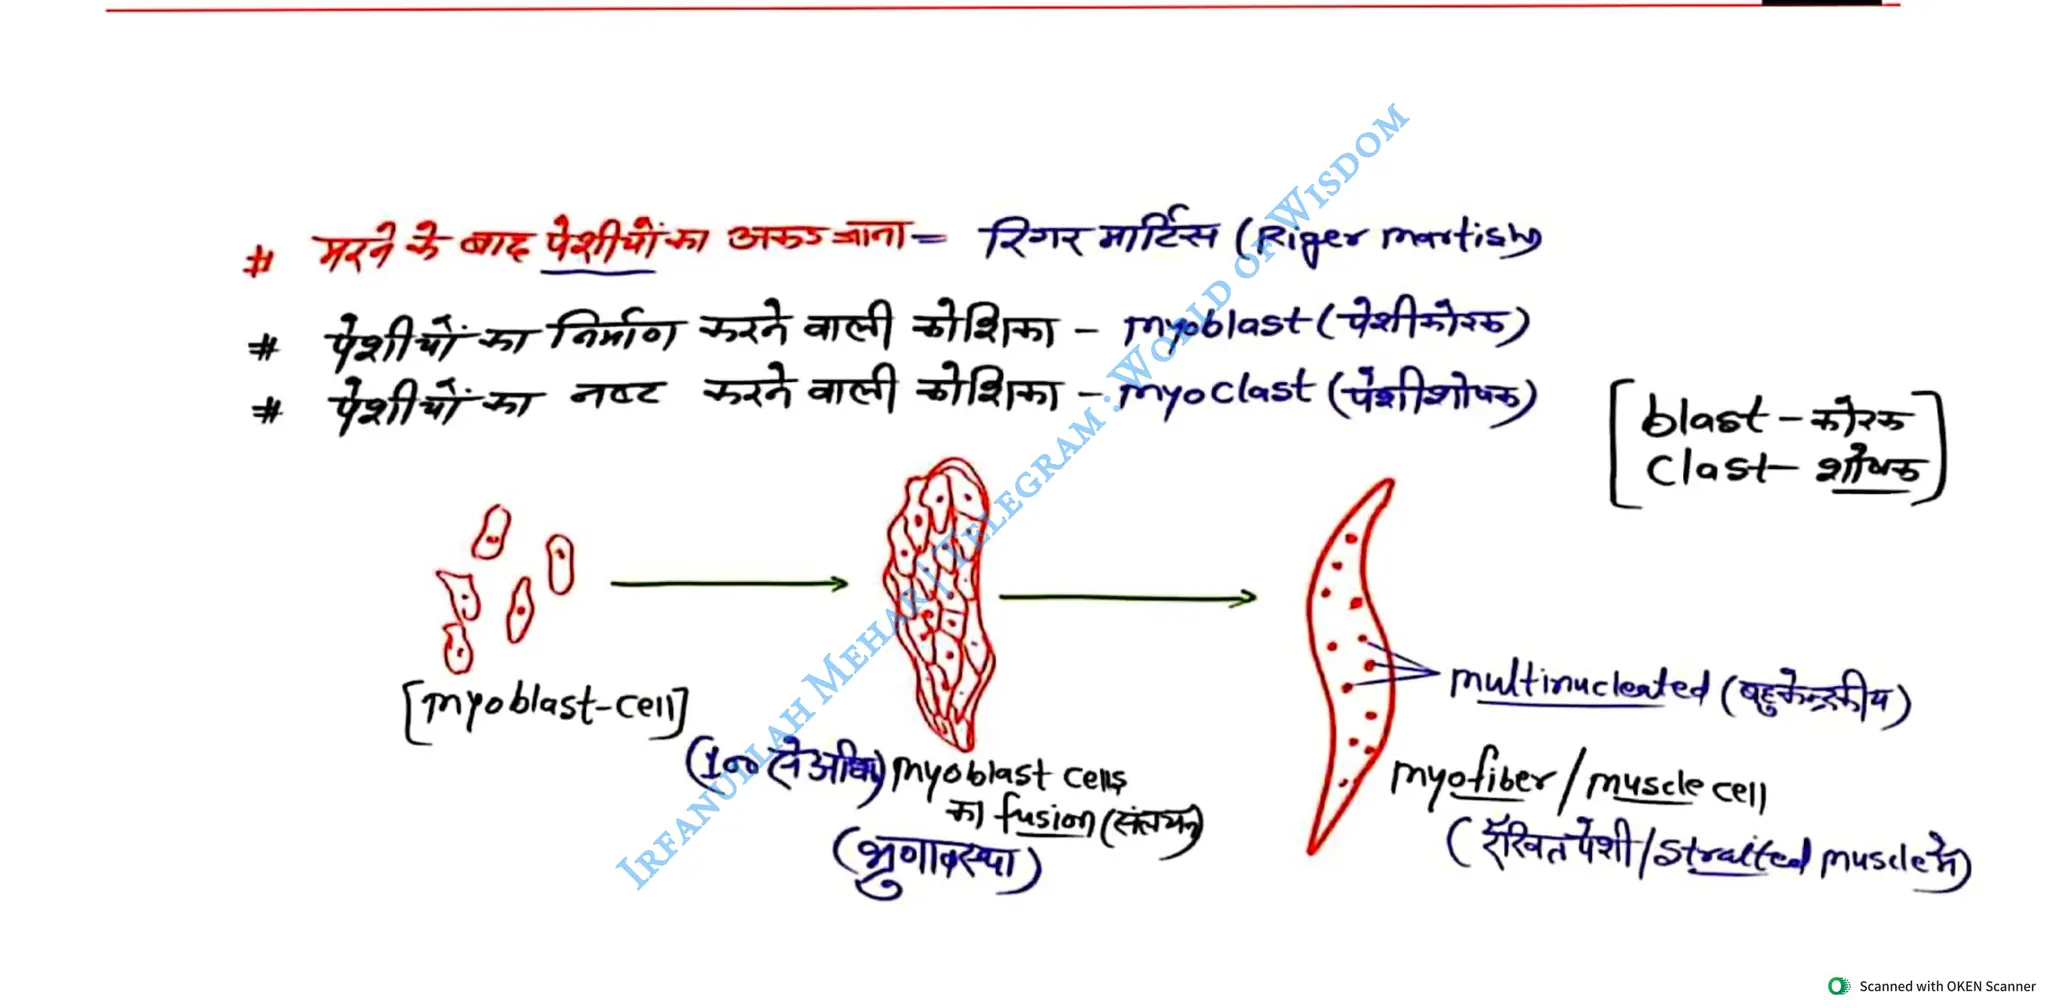 # मरने के बाद पेशीयों का अकड जाना = रिगर मार्टिस (Riger martish)
# पेशीयों का निर्माण करने वाली कोशिका - myoblast (पेशीकोरक)
# पेशीयों का नष्ट करने वाली कोशिका - myoclast (पेशीशोषक)
[blast - कोरक
Clast - शोषक]
[myoblast-cell]
(100 से अधिक) myoblast cells
का fusion (संलयन)
(भ्रुणावस्था)
multinucleated (बहुकेन्द्रकीय)
myofiber / muscle cell
(रेखित पेशी / straited muscle में)
IRFANULLAH MEHAR | TELEGRAM : WORLD OF WISDOM
Scanned with OKEN Scanner